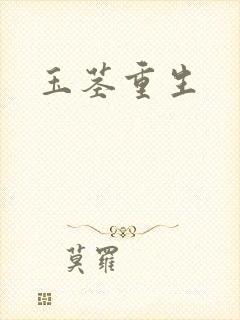 玉茎重生
莫羅